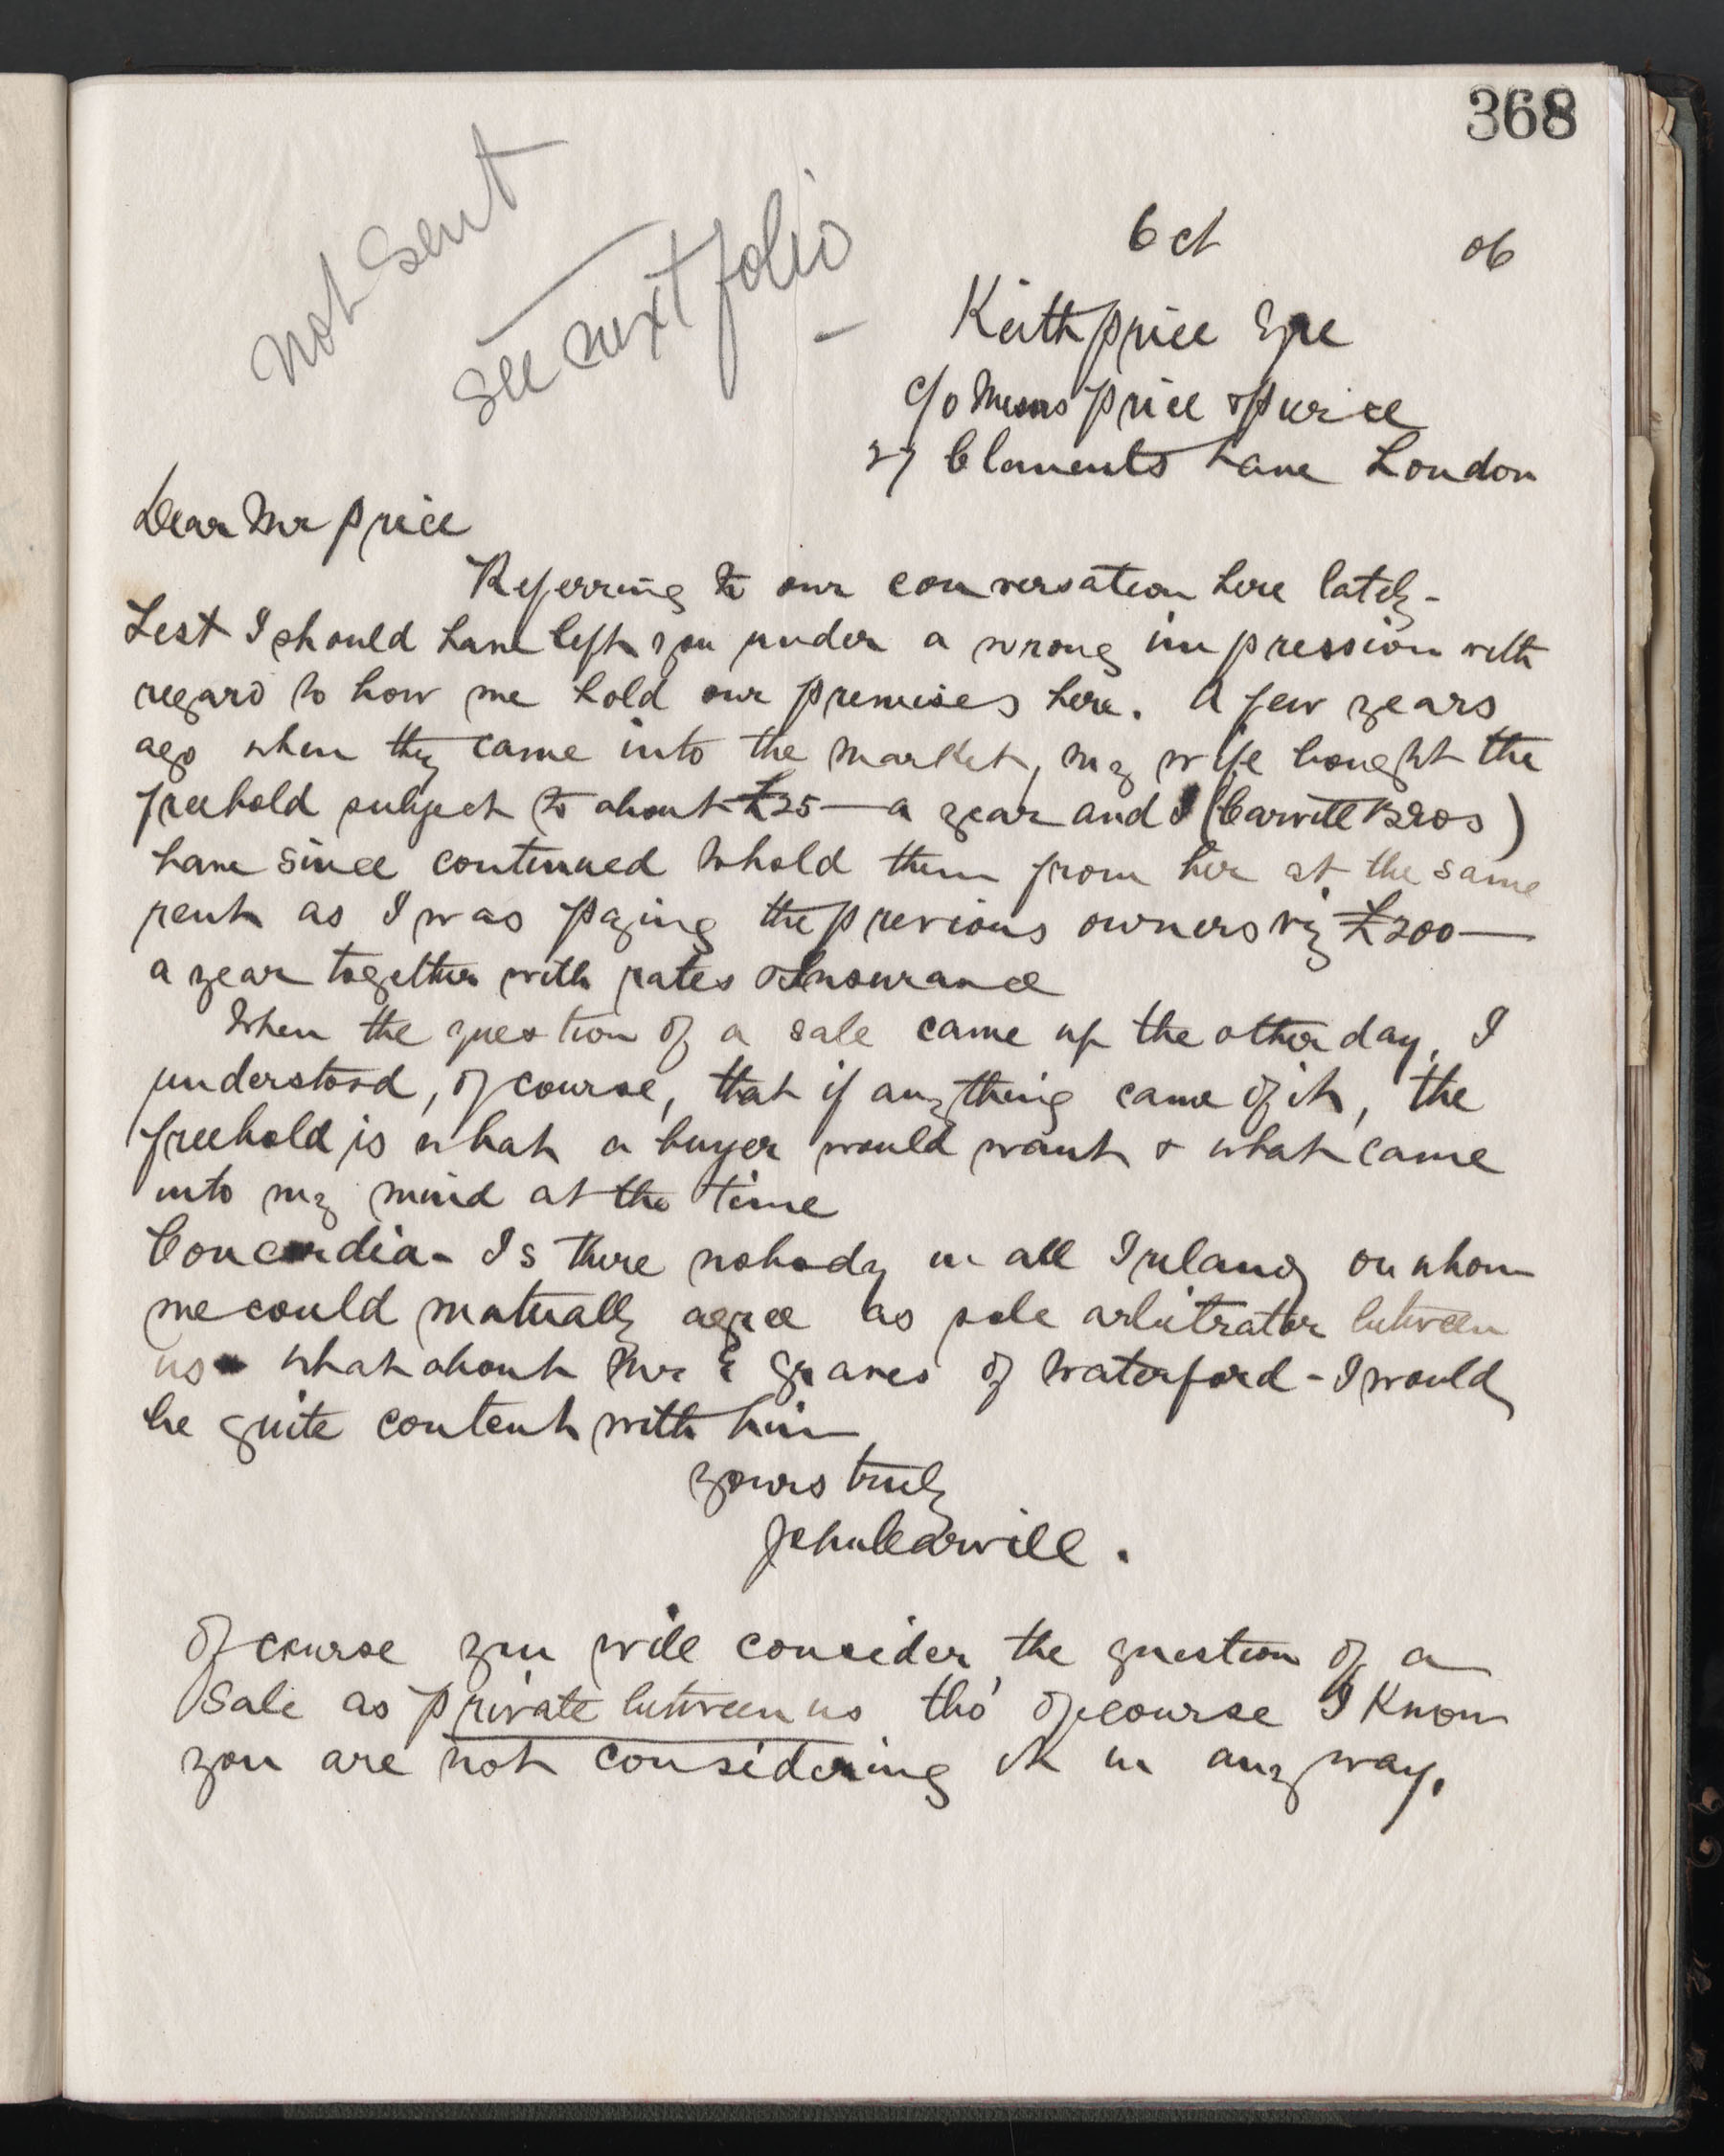 368
Not Sent
See next folio
6 Oct 06
Keith Price Esqre
c/o Messrs Price & Pierce
27 Clements Lane London
Dear Mr Price
Referring to our conversation here lately -
Lest I should have left you under a wrong impression with
regard to how we hold our premises here. A few years
ago when they came into the market, my wife bought the
freehold subject to about £25 — a year and I (Carvill Bros)
have since continued to hold them from her at the same
rent as I was paying the previous owners viz £200 —
a year together with rates & Insurance
When the question of a sale came up the other day, I
understood, of course, that if anything came of it, the
freehold is what a buyer would want & what came
into my mind at the time
Concordia - Is there nobody in all Ireland on whom
we could mutually agree as sole arbitrator between
us - what about Mr E Graves of Waterford - I would
be quite content with him
Yours truly
John Carvill.
Of course you will consider the question of a
Sale as private between us tho' of course I know
you are not considering it in any way.